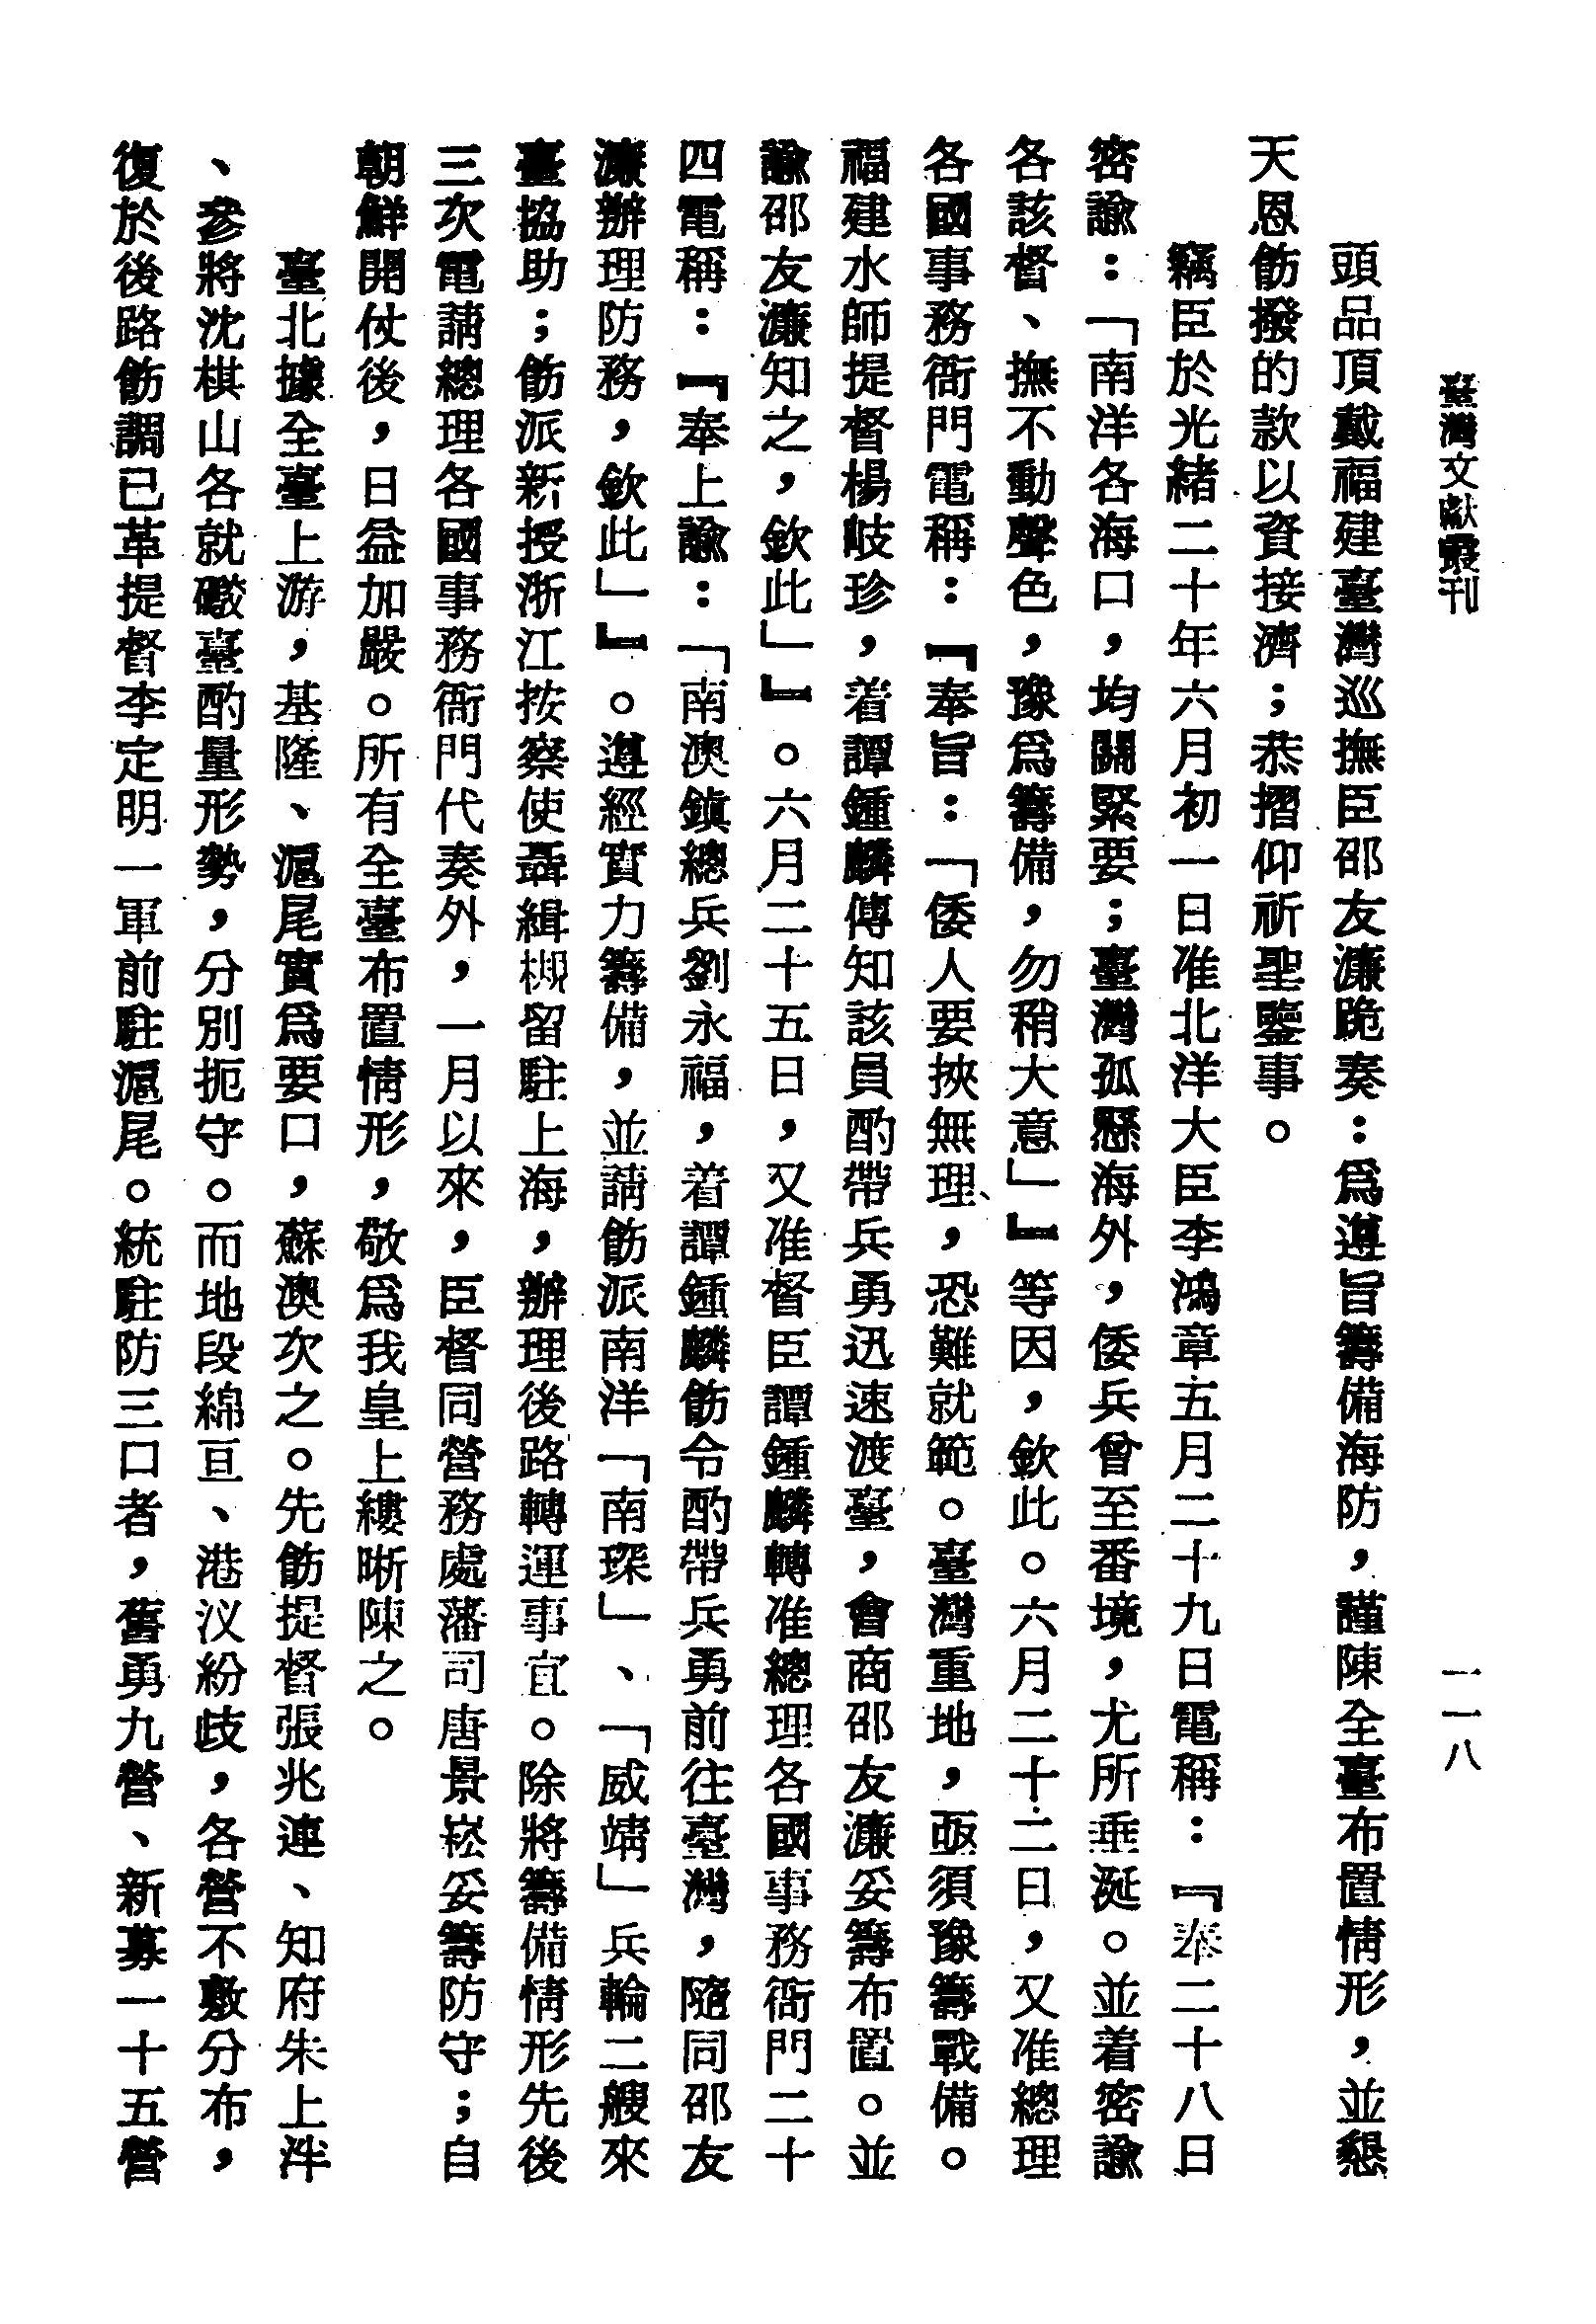 臺灣文獻叢刊
一一八
頭品頂戴福建臺灣巡撫臣邵友濂跪奏：爲遵旨籌備海防，謹陳全臺布置情形，並懇
天恩飭撥的款以資接濟；恭摺仰祈聖鑒事。
竊臣於光緒二十年六月初一日准北洋大臣李鴻章五月二十九日電稱：『奉二十八日
密諭：「南洋各海口，均關緊要；臺灣孤懸海外，倭兵曾至番境，尤所垂涎。並着密諭
各該督、撫不動聲色，豫爲籌備，勿稍大意」』等因，欽此。六月二十二日，又准總理
各國事務衙門電稱：『奉旨：「倭人要挾無理，恐難就範。臺灣重地，亟須豫籌戰備。
福建水師提督楊岐珍，着譚鍾麟傳知該員酌帶兵勇迅速渡臺，會商邵友濂妥籌布置。並
諭邵友濂知之，欽此」』。六月二十五日，又准督臣譚鍾麟轉准總理各國事務衙門二十
四電稱：『奉上諭：「南澳鎮總兵劉永福，着譚鍾麟飭令酌帶兵勇前往臺灣，隨同邵友
濂辦理防務，欽此」』。遵經實力籌備，並請飭派南洋「南琛」、「威靖」兵輪二艘來
臺協助；飭派新授浙江按察使聶緝槼留駐上海，辦理後路轉運事宜。除將籌備情形先後
三次電請總理各國事務衙門代奏外，一月以來，臣督同營務處藩司唐景崧妥籌防守；自
朝鮮開仗後，日益加嚴。所有全臺布置情形，敬爲我皇上縷晰陳之。
臺北據全臺上游，基隆、滬尾實爲要口，蘇澳次之。先飭提督張兆連、知府朱上泮
、參將沈棋山各就礮臺酌量形勢，分別扼守。而地段綿亘、港汊紛歧，各營不敷分布，
復於後路飭調已革提督李定明一軍前駐滬尾。統駐防三口者，舊勇九營、新募一十五營